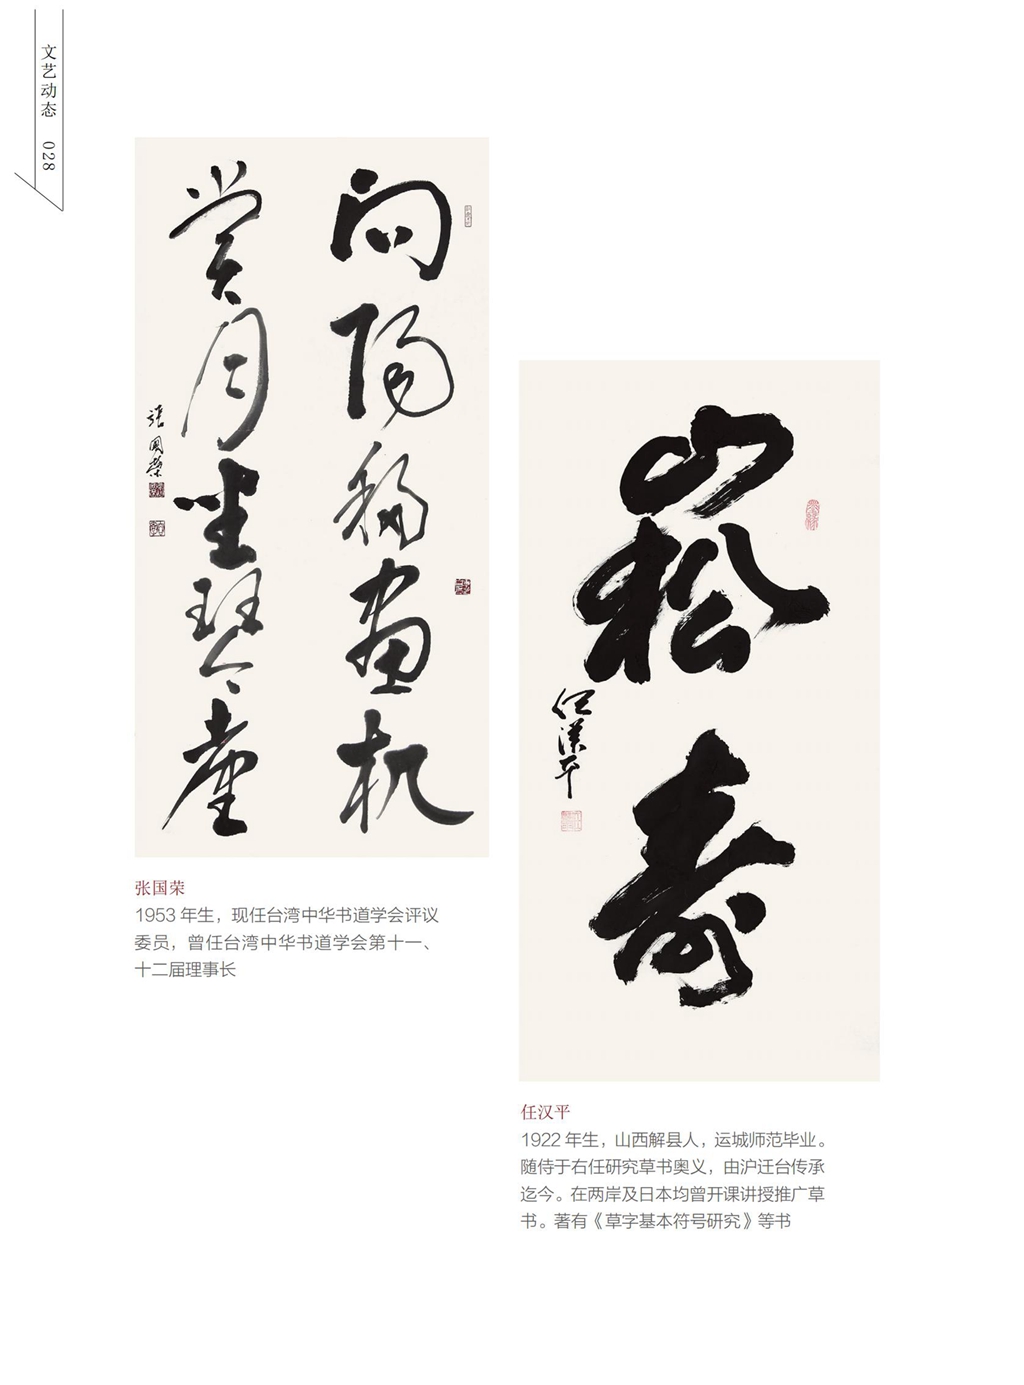 文艺动态 028
向陽移畫机
賞月坐琴臺
張國榮
崧壽
任漢平
张国荣
1953 年生，现任台湾中华书道学会评议
委员，曾任台湾中华书道学会第十一、
十二届理事长
任汉平
1922 年生，山西解县人，运城师范毕业。
随侍于右任研究草书奥义，由沪迁台传承
迄今。在两岸及日本均曾开课讲授推广草
书。著有《草字基本符号研究》等书